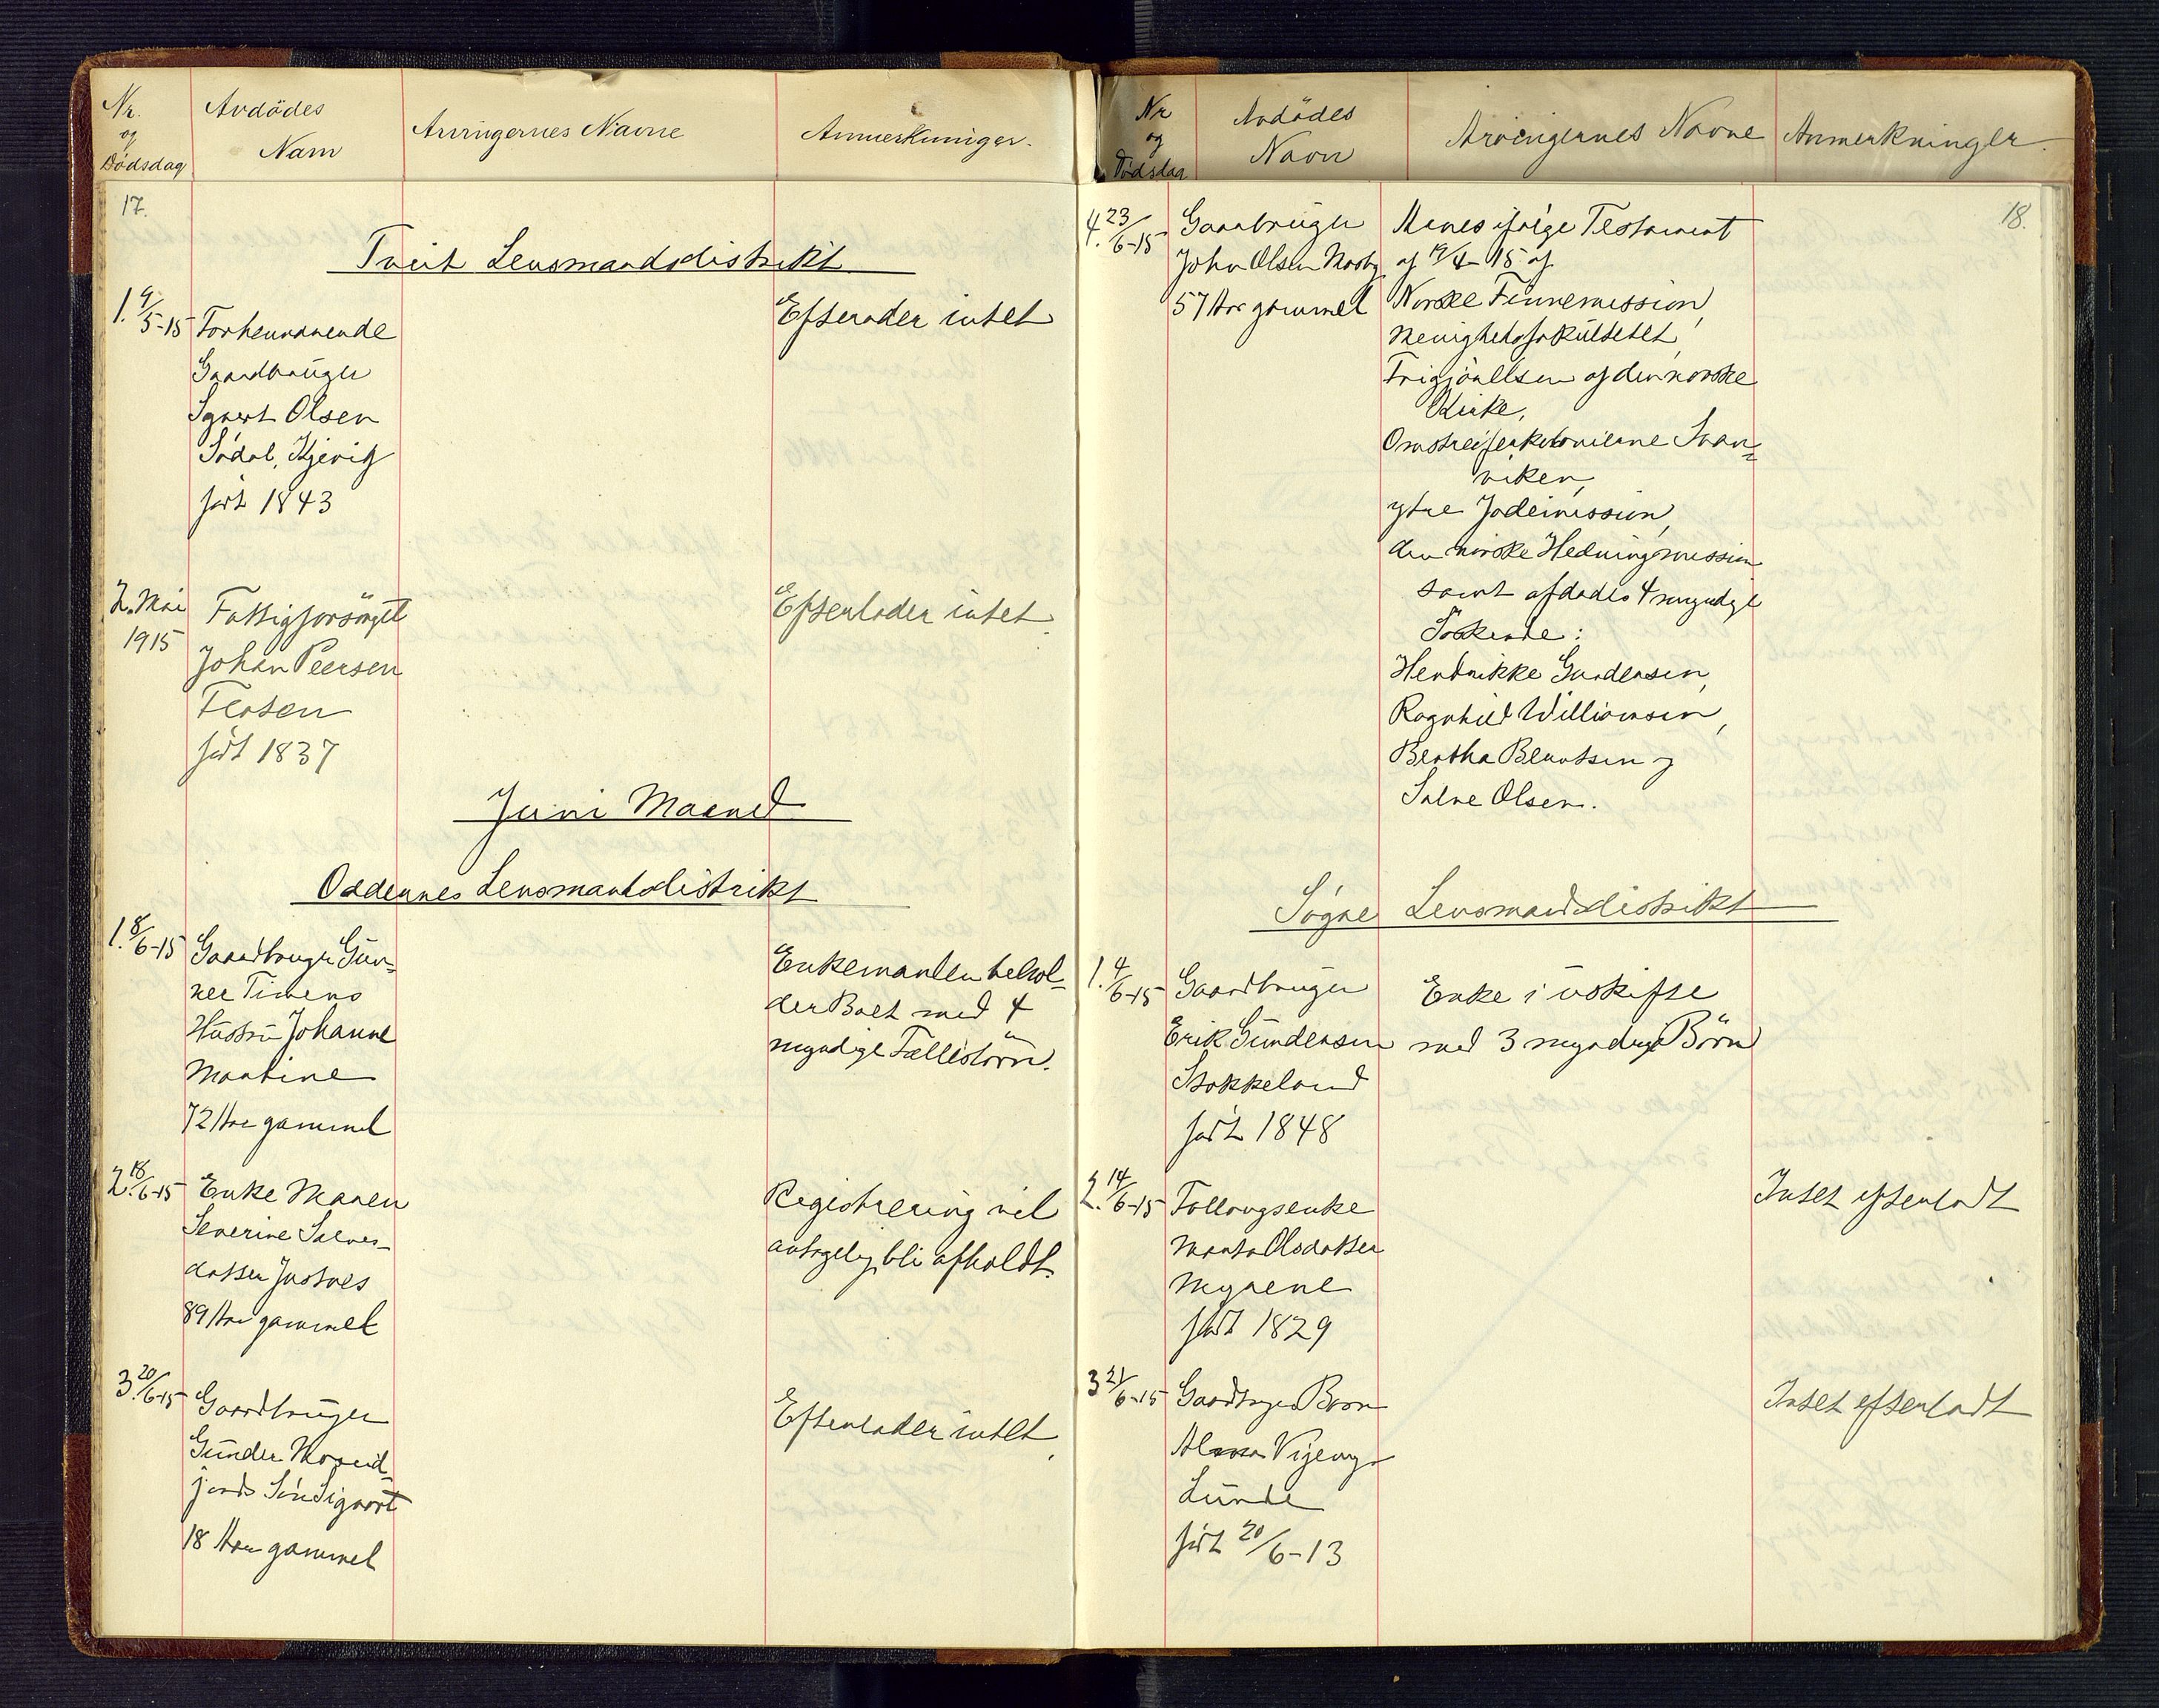 Nr.
og
Dödsdag
Avdödes
Navn
Arvingernes Navne
Anmerkninger.
17.
Tveit Lensmandsdistrikt
1. 9/5-15 Forhenværende
Gaardbruger
Sgvert Olsen
Södal, Kjevig
født 1843
Efterlader intet
2. Mai
1915
Fattigforsörget
Johan Peersen
Flosen
født 1837
Efterlader intet.
Juni Maaned
Oddernes Lensmandsdistrikt
1. 8/6-15 Gaardbruger Gun-
Timens
Hustru Johanne
Martine
72 Aar gammel
Enkemanden behol-
der Boet med 4
myndige Fællesbörn.
2. 18/6-15 Enke Maren
Severine Salves-
datter Justnes
89 Aar gammel
Registrering vil
antagelig bli afholdt.
3. 20/6-15 Gaardbruger
Gunder Moseid-
jords Sön Sigvart
18 Aar gammel
Efterlader intet.
Nr
og
Dödsdag
Avdödes
Navn
Arvingernes Navne
Anmerkninger.
18.
4. 23/6-15 Gaardbruger
John Olsen Mosby
57 Aar gammel
Arves ifølge Testament
af 19/4-15 af
Norske Finnemission,
Menighedsfakultetet,
Frigjørelsen af den norske
Kirke,
Omstreiferkolonierne Svan-
viken,
ytre Jødemission,
den norske Hedningmission
samt afdødes 4 myndige
Søskende:
Hendrikke Gundersen,
Ragnhild Williamsen,
Bertha Berntsen og
Salve Olsen.
Søgne Lensmandsdistrikt
1. 4/6-15 Gaardbruger
Erik Gundersen
Stokkeland
født 1848
Enke i uskifte
med 3 myndige Börn
2. 14/6-15 Follougsenke
Marta Olsdatter
Myrene
født 1829
Intet efterladt
3 21/6-15 Gaardbruger Barn
Vigeng
Lunde
født 20/6-13
Intet efterladt